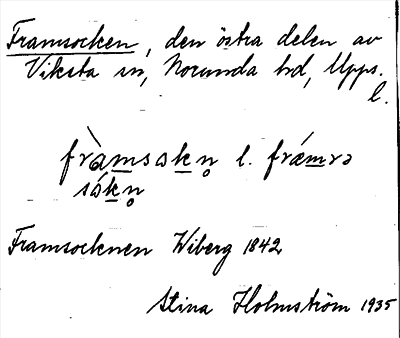 Framsocken, den östra delen av
Viksta sn, Norunda hd, Upps.
l.
fràmsɔkn̥ l. frǽmrə
sɔ́kn̥
Framsocknen Wiberg 1842
Stina Holmström 1935